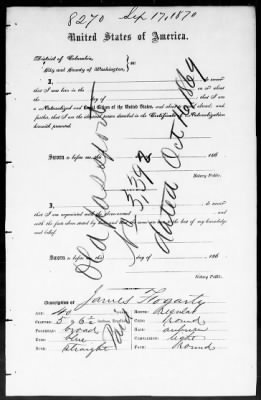 8270 Sep 17, 1870
United States of America.
District of Columbia,
City and County of Washington, } ss:
I, do swear
that I was born in the
day of
a Naturalized and Loyal Citizen of the United States, and about to travel abroad; and
further, that I am the person described in the Certificate of Naturalization
herewith presented.
Sworn to before me this day of 186
Notary Public.
I, do swear
that I am acquainted with the above named
and with the facts above stated by the best of my knowledge
and belief.
Sworn before me this day of 186
Notary Public.
Old Passport
No 5,392
dated Oct 14, 1869
Paid
Description of James Fogarty
Age: 40 Mouth: Regular
Stature: 5 ft 6 1/2 inches, Eng. Chin: round
Forehead: broad Hair: auburn
Eyes: blue Complexion: light
Nose: straight Face: Round